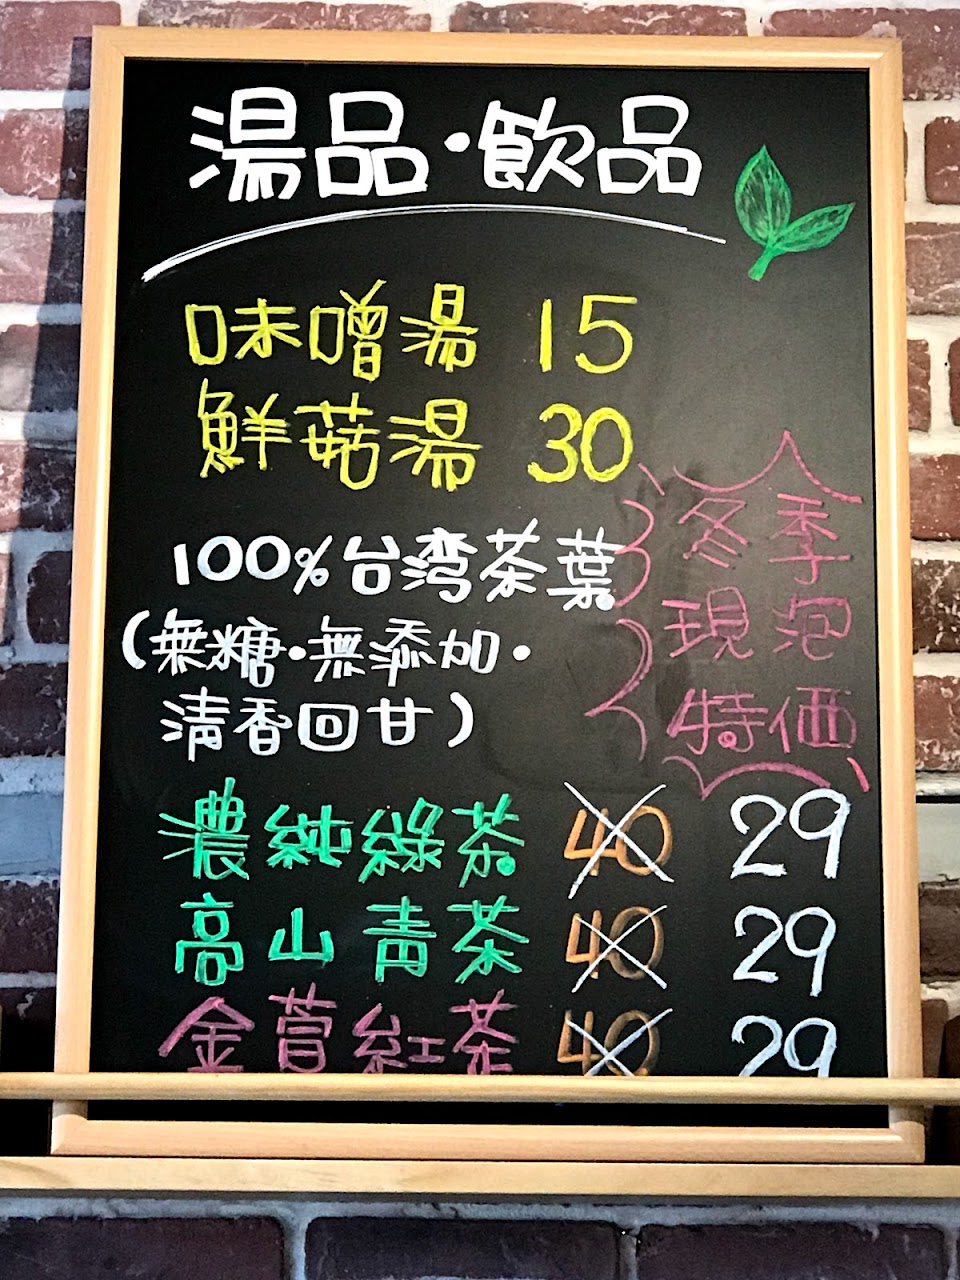 湯品·飲品
味噌湯 15
鮮菇湯 30
100%台湾茶葉
(無糖·無添加·
清香回甘)
冬季
現泡
特価
濃純綠茶 40 29
高山青茶 40 29
金萱紅茶 40 29